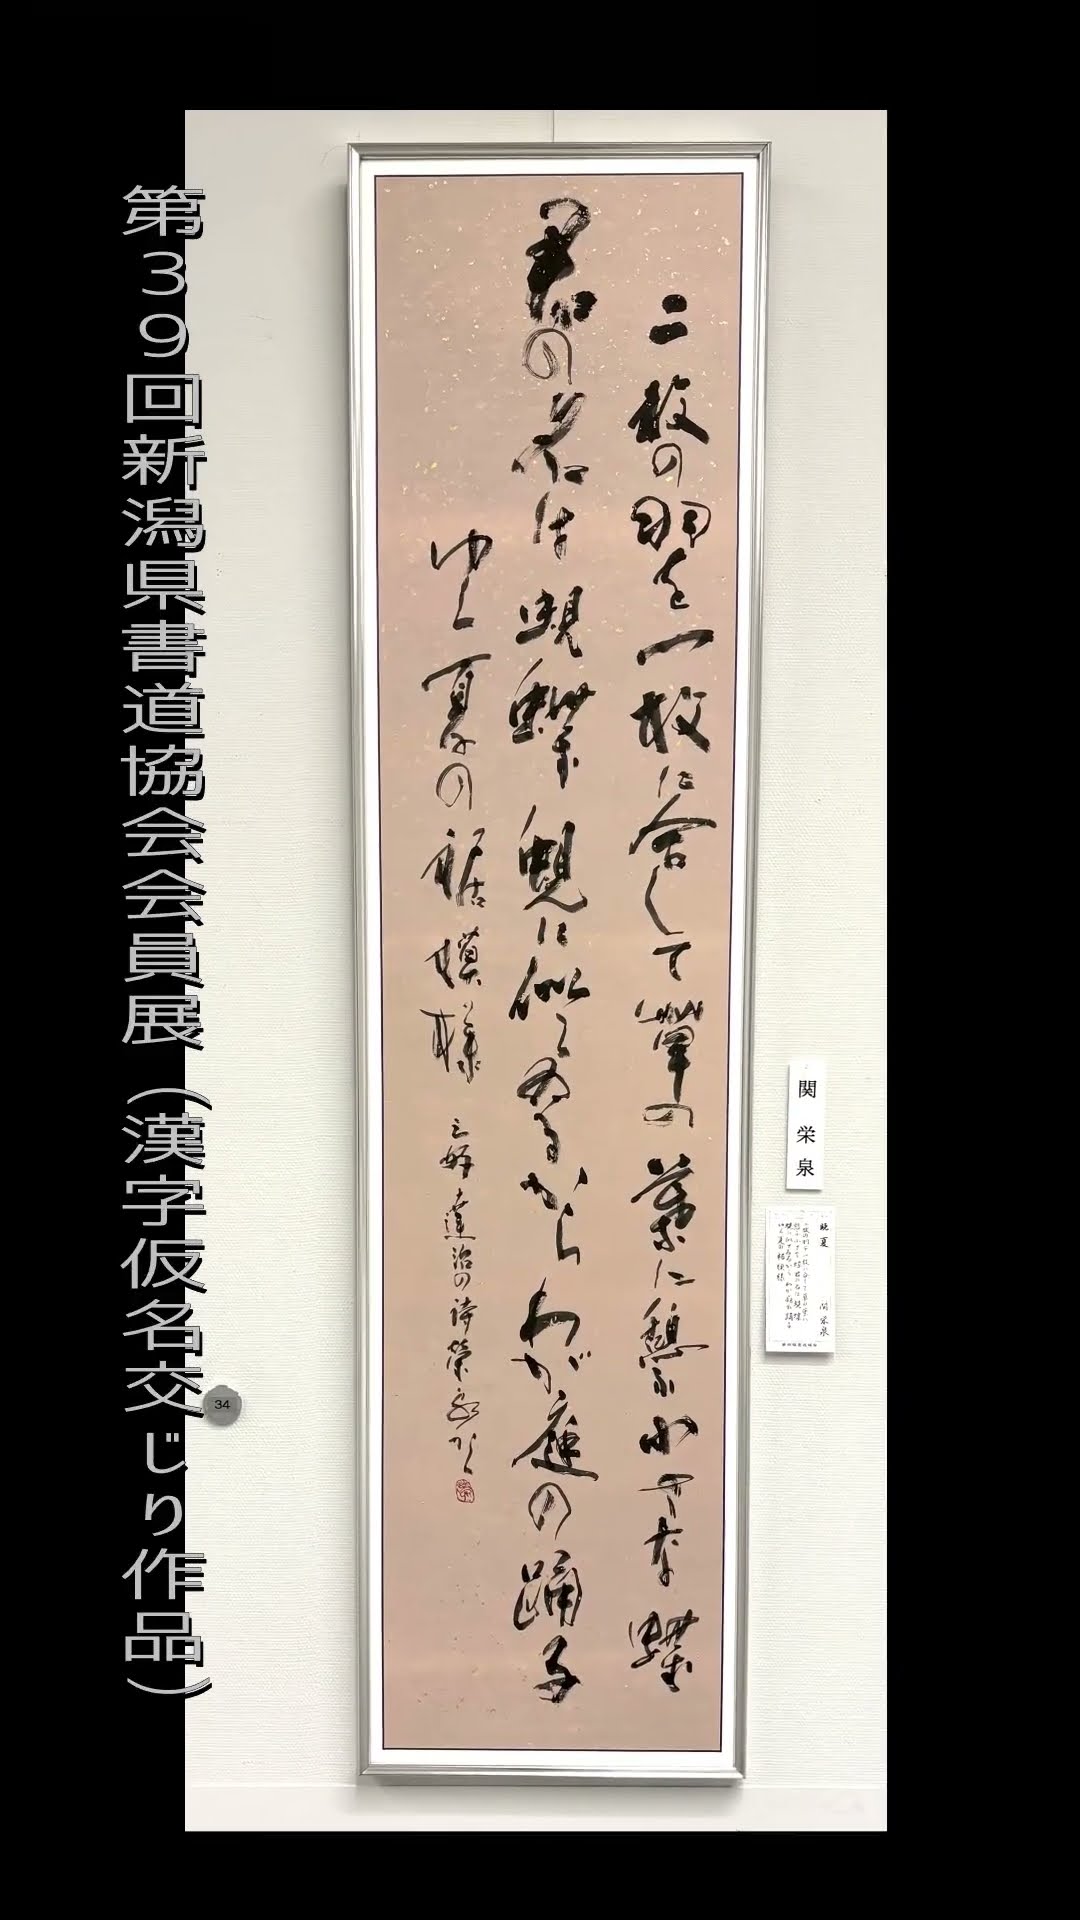 第３９回新潟県書道協会会員展（漢字仮名交じり作品）
二枚の羽を一枚に合して草の葉に憩ふ小さな蝶
君の名は蜆蝶蜆に似てゐるからわが庭の踊子
ゆく夏の裾模様
三好達治の詩榮泉かく
関栄泉
晩夏 関栄泉
34